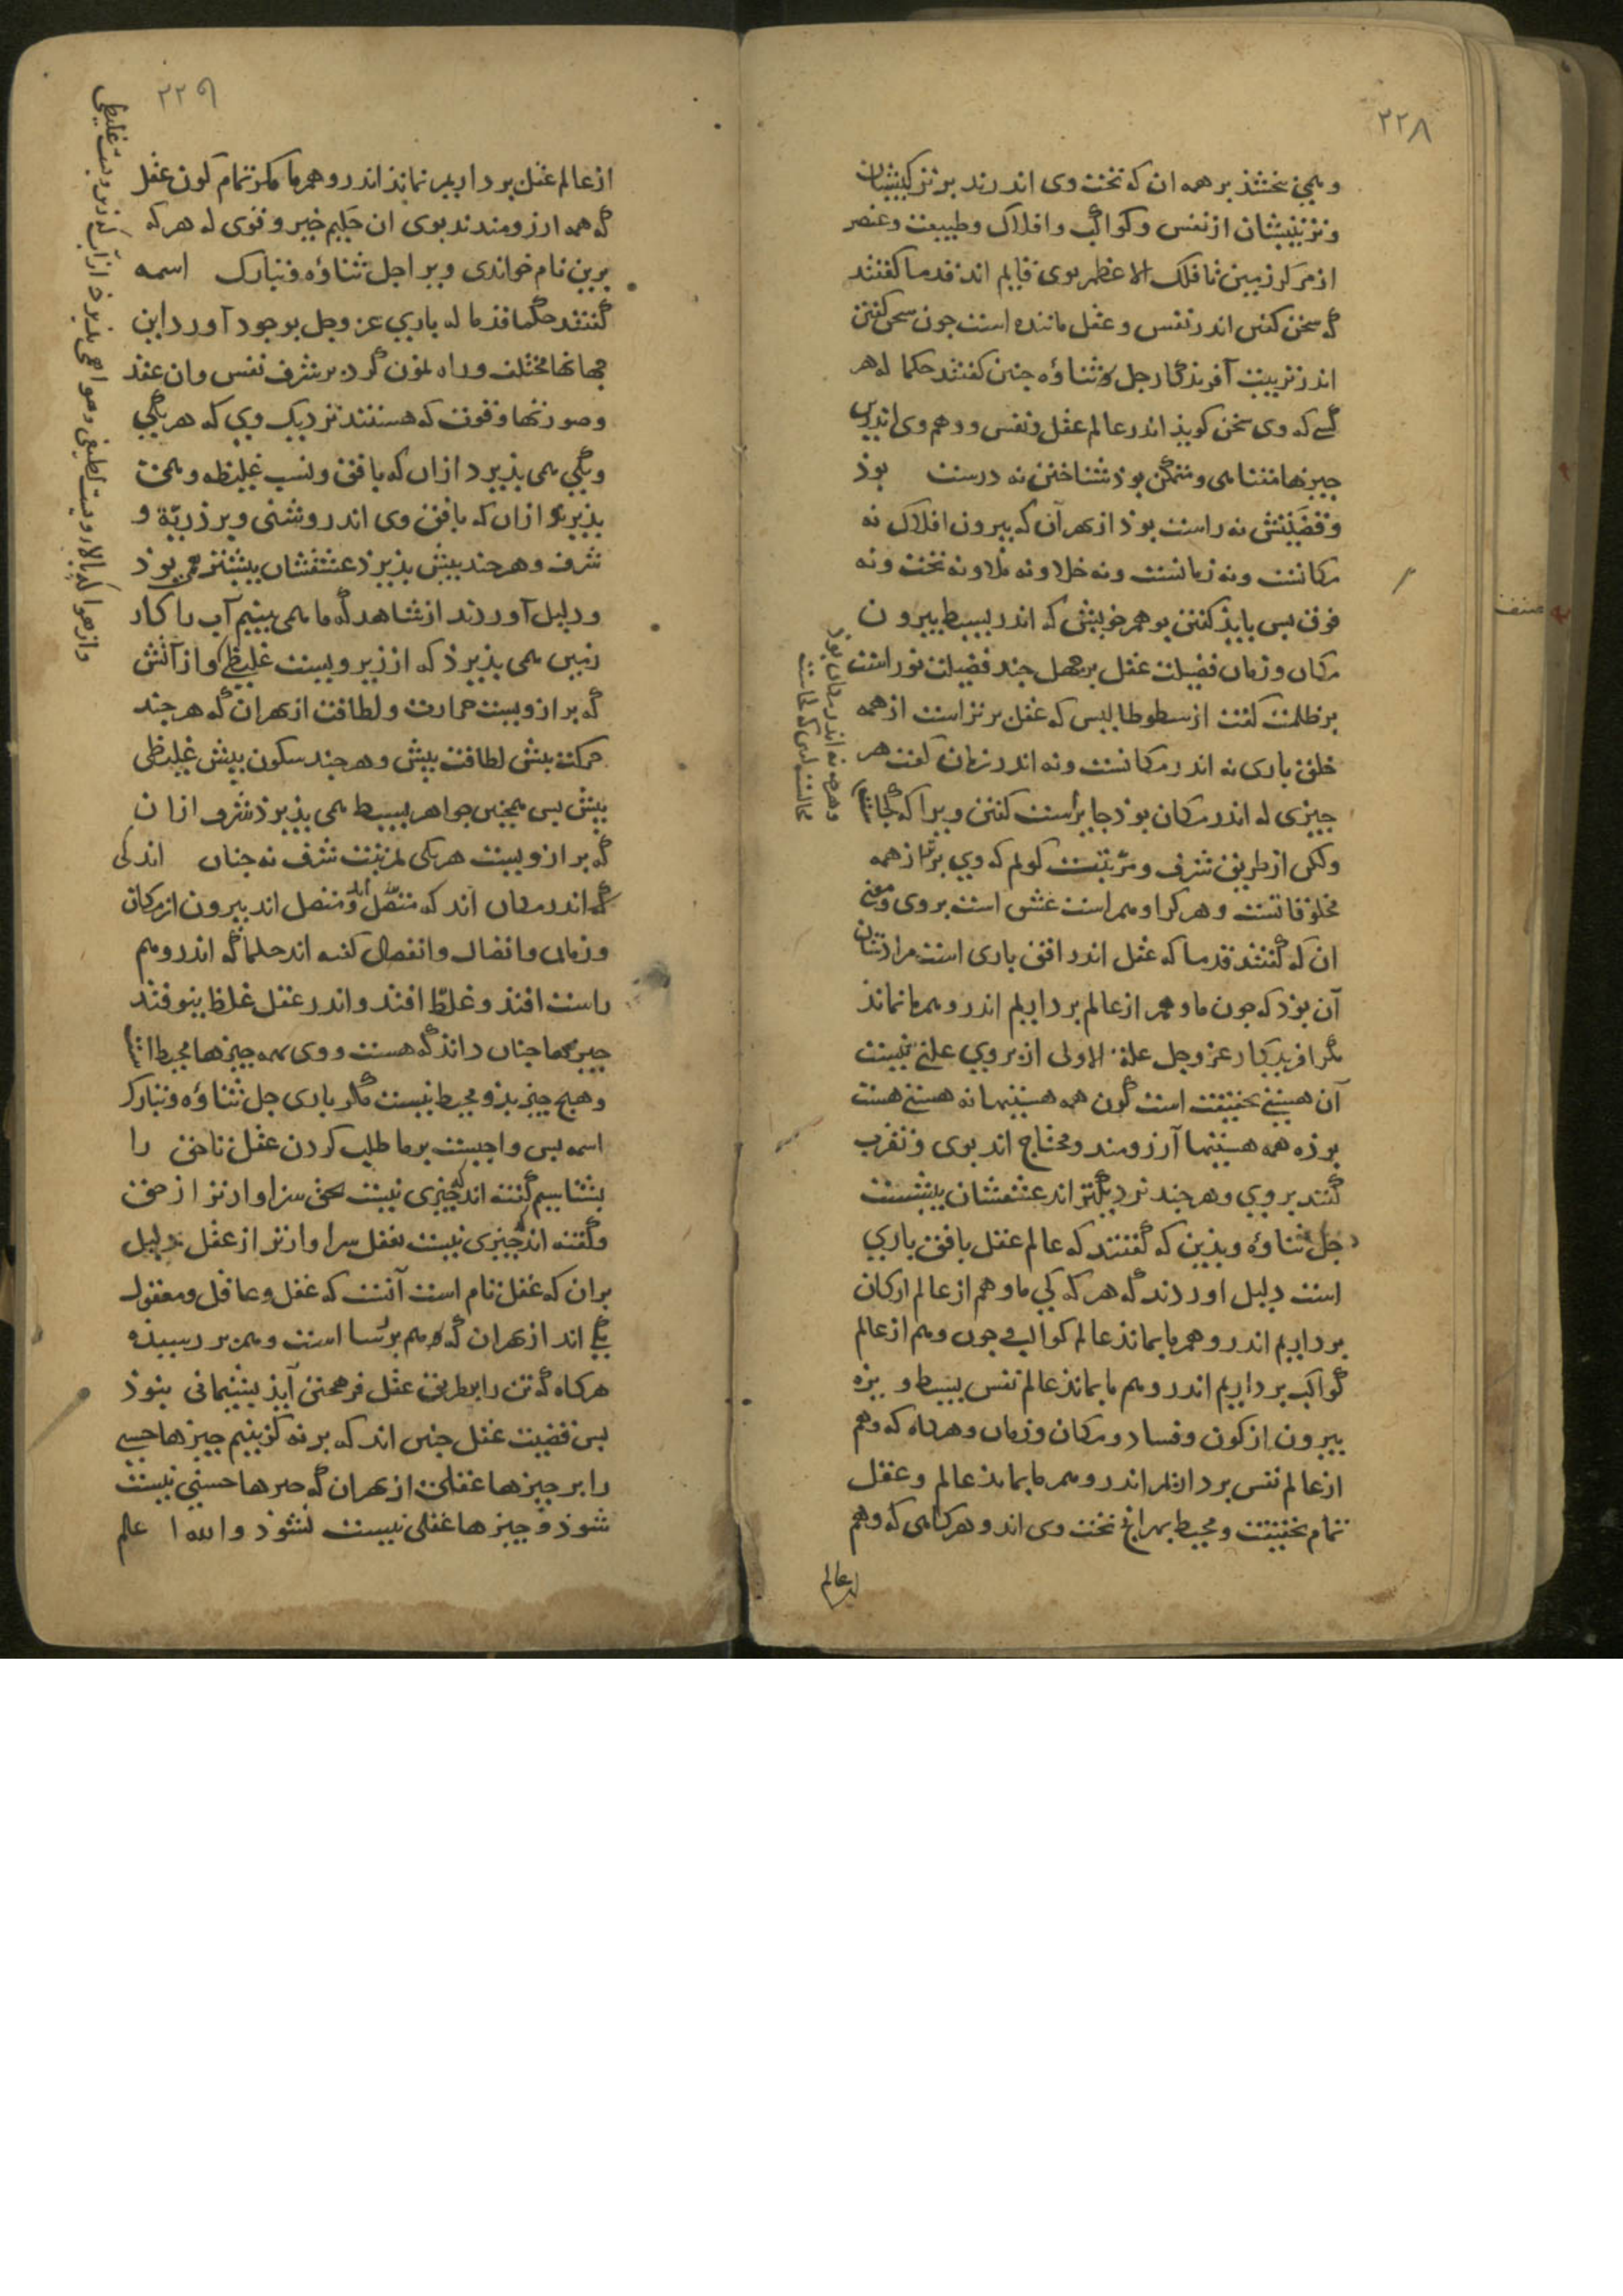 ۲۲۸
و همی بخشد بر همه ان که تحت وی اندرند برتر کیبشان
و ترتیبشان از نفس و کواکب و افلاک و طبیعت و عنصر
از مرکز زمین تا فلک الاعظم بوی قایم اند قدما گفتند
که سخن گفتن اندر نفس و عقل ماننده است جون سخن گفتن
اندر ترتیب آفریذگار جل ثناؤه جنین گفتند حکما که هر
کسی که وی سخن کویذ اندر عالم عقل و نفس و وهم وی اندرین
جیزها متناهی و متمکن بوذ شناختن نه درست بوذ
و قضیتش نه راست بوذ از بهر آن که بیرون افلاک نه
مکانست و نه زمانست و نه خلا و نه ملا و نه تحت و نه
فوق بس بایذ گفتن بوهم خویش که اندر بسیط بیرون
مکان و زمان فضیلت عقل بر جهل جند فضیلت نور است
بر ظلمت گفت ارسطوطالیس که عقل برتر است از همه
خلق باری نه اندر مکانست و نه اندر زمان گفت هر
جیزی که اندر مکان بوذ جایز است گفتن ویرا که کجاست
ولکن از طریق شرف و مرتبت کویم که وی برتر از همه
مخلوقاتست و هر کرا وهم راست عشق است بروی و معنی
ان که گفتند قدما که عقل اندر افق باری است مرادشان
آن بوذ که جون ما وهم از عالم برداریم اندر وهم ما نماند
مگر افریدکار عز وجل علة الاولی از بر وی علتی نیست
آن هستی بحقیقت است کون همه هستیها نه هستی هست
بوذه همه هستیها آرزومند و محتاج اند بوی و تقرب
کنند بر وی و هر جند نزدیکتر اند عشقشان بیشست
جل ثناؤه و بذین که گفتند که عالم عقل بافق باری
است دلیل اوردند که هر که کی ما وهم از عالم ارکان
برداریم اندر وهم ما بماند عالم کواکب و جون وهم از عالم
کواکب برداریم اندر وهم ما بماند عالم نفس بسیط ویژه
بیرون از کون و فساد و مکان و زمان و هرگاه که وهم
از عالم نفس برداریم اندر وهم ما بماند عالم عقل
تمام بحقیقت و محیط بهرانج تحت وی اند و هرگاهی که وهم
از عالم
و هرچه نه اندر مکان بوذ
محالست که کجاست
۲۲۹
از عالم عقل برداریم نماند اندر وهم ما مکر تمام کون عقل
که همه ارزومندند بوی ان حکیم خبیر و قوی که هر که
برین نام خواندی ویرا جل ثناؤه و تبارک اسمه
گفتند حکما قدما که باری عز وجل بوجود آورد این
جهانها مختلف و راه نمون کرد بر شرف نفس و ان عقد
و صورتها و قوت که هستند نزدیک وی که هر یکی
و یکی همی بذیرد ازان که بافق و نسب غلیظه و همی
بذیرد ازان که بافق وی اندر روشنی و بر ذریة و
شرف و هر جند بیش بذیرذ عشقشان بیشتر همی بوذ
و دلیل آوردند از شاهد که ما همی بینیم آب را کار
زمین همی بذیرذ که از زیر ویست غلیظی و از آتش
که بر از ویست حرارت و لطافت از بهر ان که هر جند
حرکت بیش لطافت بیش و هر جند سکون بیش غلیظی
بیش بس همجنین جواهر بسیط همی بذیرذ شرف ازان
که بر از ویست هر یکی بمرتبت شرف نه جنان اندکی
که اندر مکان اند که متصل اند و منفصل اند بیرون از مکان
و زمان و اتصال و انفصال گفته اند حکما که اندر وهم
راست افتد و غلط افتد و اندر عقل غلط نیوفتد
جیزها جنان داند که هست و وی همه جیزها محیط است
و هیج جیز بذو محیط نیست مگر باری جل ثناؤه و تبارک
اسمه بس واجبست برما طلب کردن عقل تا حق را
بشناسیم گفته اند که جیزی نیست بحق سزاوارتر از حق
و گفته اند که جیزی نیست بعقل سزاوارتر از عقل دلیل
بران که عقل تام است آنست که عقل و عاقل و معقول
یکی اند از بهر ان که وهم برسا است و وهم بر رسیده
هرگاه که تن را بطریق عقل فرهختن آید بشیمانی نبوذ
بس قضیت عقل جنین اند که برنه کزینیم جیزها حسی
را بر جیزها عقلی از بهر ان که جیزها حسی نیست
شوذ و جیزها عقلی نیست نشوذ والله اعلم
و از هوا که بالاء ویست لطیفی و هوا همی بذیرد از آب که زیر ویست غلیظی